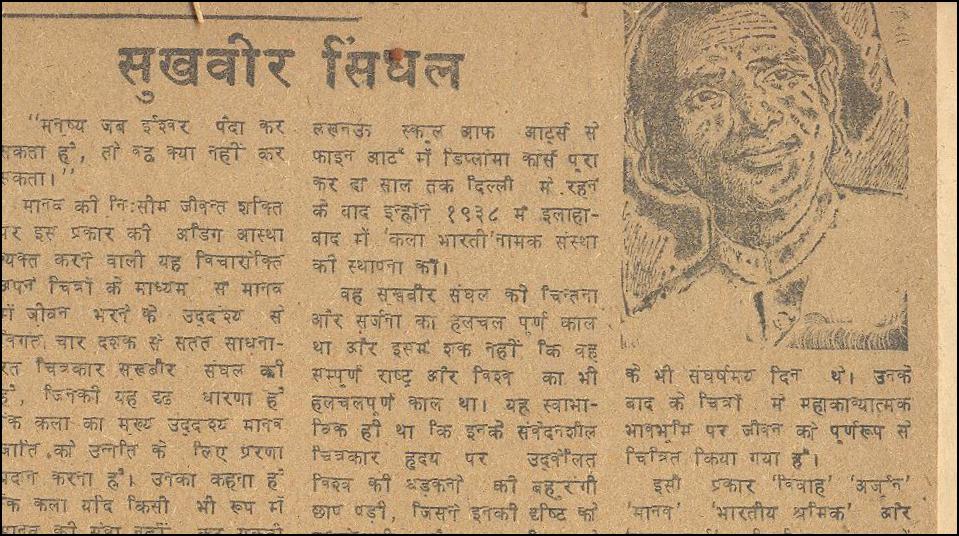 सुखवीर सिंघल
"मनुष्य जब ईश्वर पैदा कर
सकता है, तो वह क्या नहीं कर
सकता।"
मानव की निःसीम जीवन्त शक्ति
पर इस प्रकार की अडिग आस्था
व्यक्त करने वाली यह विचारोक्ति
अपने चित्रों के माध्यम से मानव
में जीवन भरने के उद्देश्य से
विगत चार दशक से सतत साधना-
रत चित्रकार सुखवीर संघल की
है, जिनकी यह दृढ़ धारणा है
कि कला का मुख्य उद्देश्य मानव
जाति को उन्नति के लिए प्रेरणा
प्रदान करना है। उनका कहना है
कि कला यदि किसी भी रूप में
मानव की सेवा नहीं कर सकती
लखनऊ स्कूल आफ आर्ट्स से
फाइन आर्ट में डिप्लोमा कोर्स पूरा
कर दो साल तक दिल्ली में रहने
के बाद इन्होंने १९३८ में इलाहा-
बाद में 'कला भारती' नामक संस्था
की स्थापना की।
वह सुखवीर संघल की चिन्तना
और सर्जना का हलचल पूर्ण काल
था और इसमें शक नहीं कि वह
सम्पूर्ण राष्ट्र और विश्व का भी
हलचलपूर्ण काल था। यह स्वाभा-
विक ही था कि इनके संवेदनशील
चित्रकार हृदय पर उद्वेलित
विश्व की धड़कनों की बहुरंगी
छाप पड़ी, जिसने इनकी दृष्टि को
के भी संघर्षमय दिन थे। उनके
बाद के चित्रों में महाकाव्यात्मक
भावभूमि पर जीवन को पूर्णरूप से
चित्रित किया गया है।
इसी प्रकार 'विवाह' 'अर्जुन'
'मानव' 'भारतीय श्रमिक' और